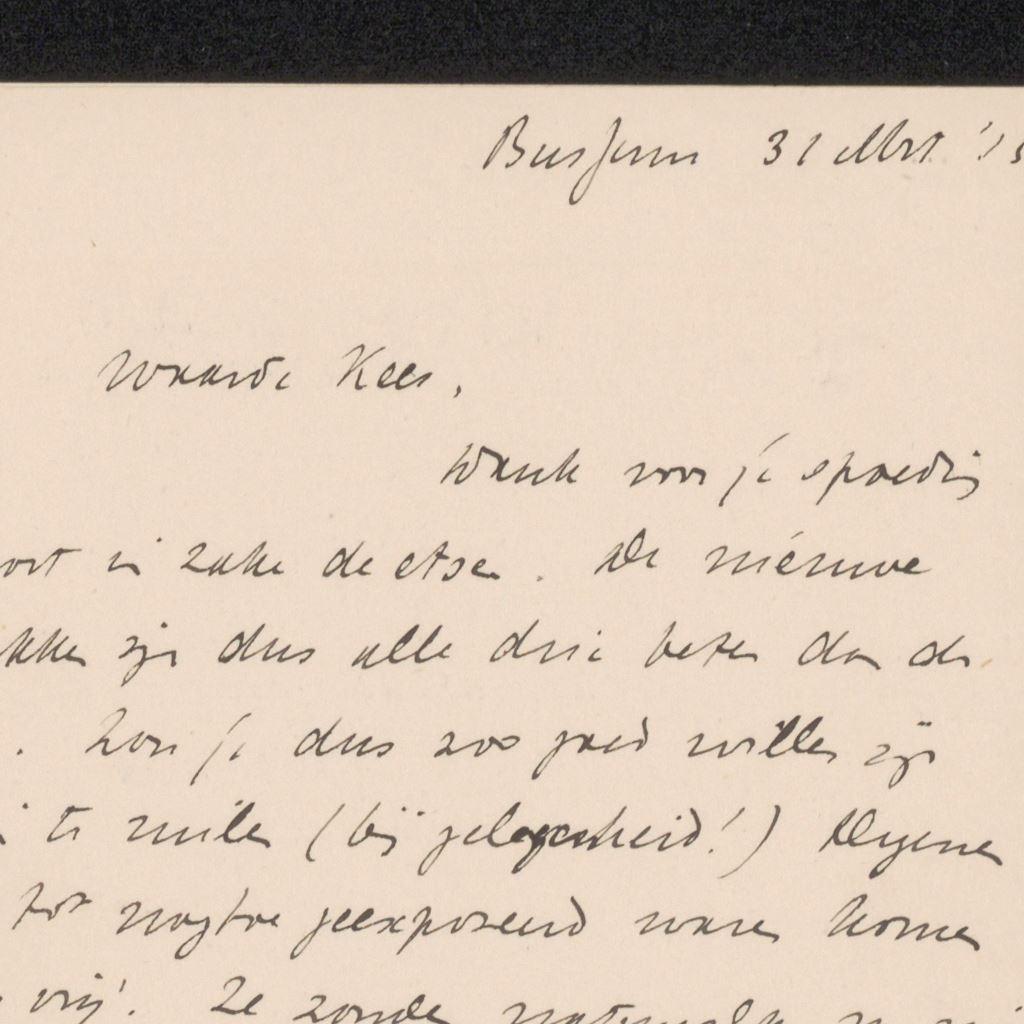 Bussum 31 Mrt '15
Waarde Kees,
Dank voor je spoedig
in zake de etsen. De nieuwe
zijn dus alle drie beter dan de
. Zou je dus zoo goed willen zijn
te ruilen (bij gelegenheid!) Degene
tot nogtoe geexposeerd waren komen
vrij. Ze zonden natuurlijk